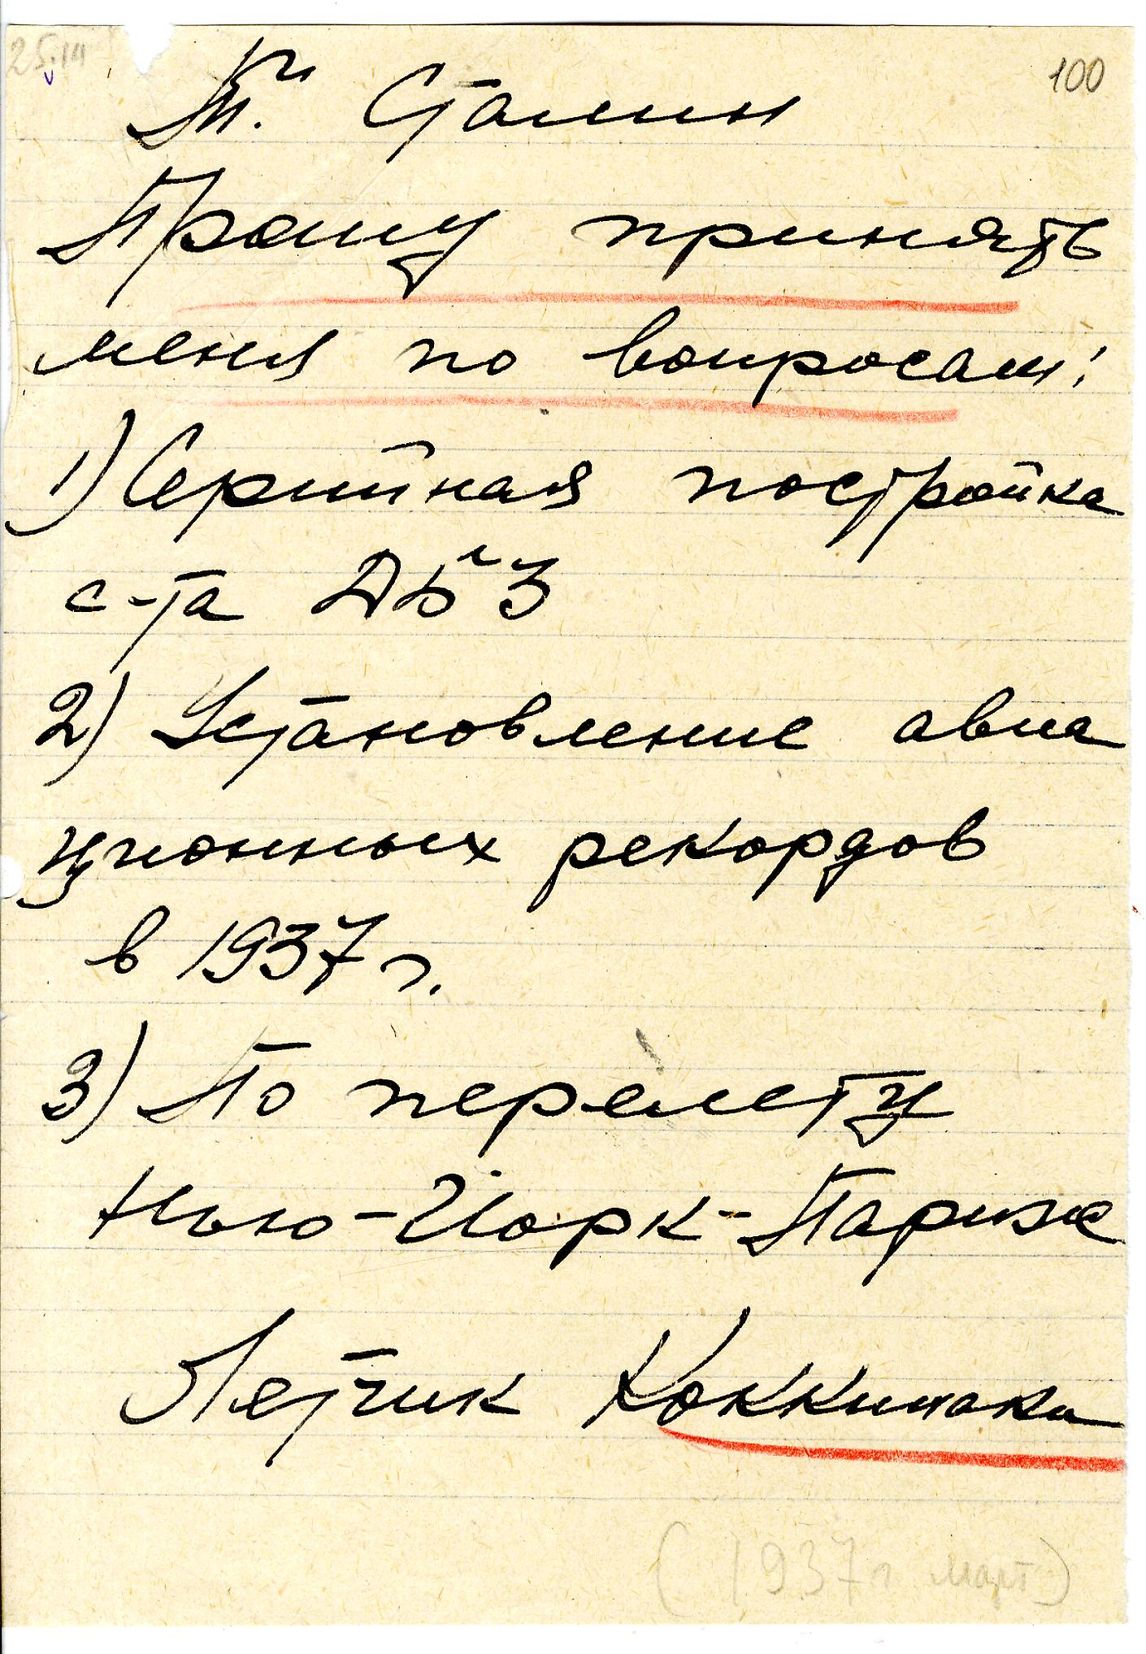 100
Т. Сталин
Прошу принять
меня по вопросам:
1) Серийная постройка
с-та ДБ-3
2) Установление авиа
ционных рекордов
в 1937 г.
3) По перелету
Нью-Йорк-Париж
Летчик Коккинаки
(1937 г март)